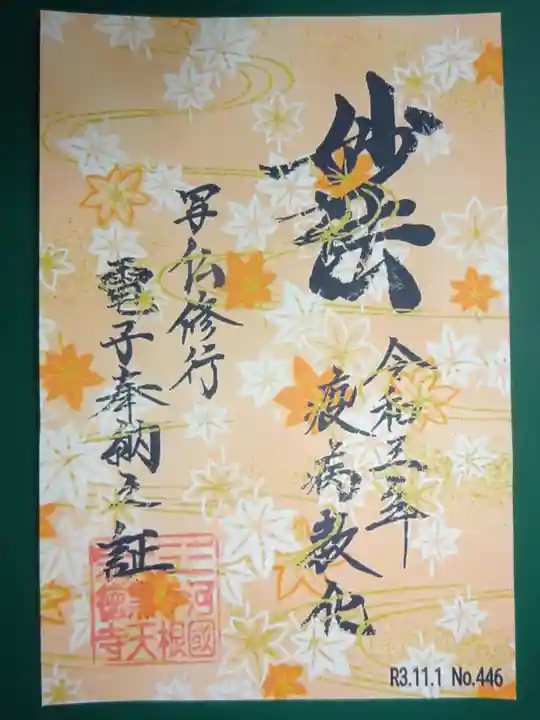 妙法
令和三年
疫病教化
写仏修行
電子奉納之証
三河國
黒天根
徳寺
R3.11.1 No.446